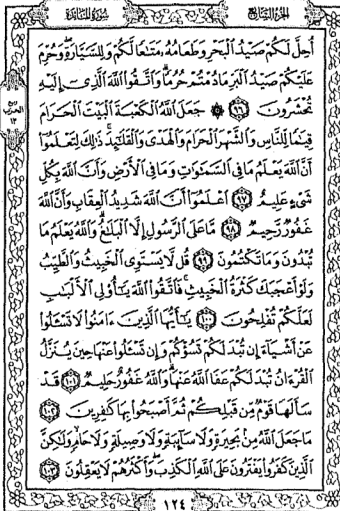 الجزء السابع
سورة المائدة
أُحِلَّ لَكُمْ صَيْدُ ٱلْبَحْرِ وَطَعَامُهُۥ مَتَٰعًا لَّكُمْ وَلِلسَّيَّارَةِ ۖ وَحُرِّمَ
عَلَيْكُمْ صَيْدُ ٱلْبَرِّ مَا دُمْتُمْ حُرُمًا ۗ وَٱتَّقُوا۟ ٱللَّهَ ٱلَّذِىٓ إِلَيْهِ
تُحْشَرُونَ ٩٦ ۞ جَعَلَ ٱللَّهُ ٱلْكَعْبَةَ ٱلْبَيْتَ ٱلْحَرَامَ
قِيَٰمًا لِّلنَّاسِ وَٱلشَّهْرَ ٱلْحَرَامَ وَٱلْهَدْىَ وَٱلْقَلَٰٓئِدَ ۚ ذَٰلِكَ لِتَعْلَمُوٓا۟
أَنَّ ٱللَّهَ يَعْلَمُ مَا فِى ٱلسَّمَٰوَٰتِ وَمَا فِى ٱلْأَرْضِ وَأَنَّ ٱللَّهَ بِكُلِّ
شَىْءٍ عَلِيمٌ ٩٧ ٱعْلَمُوٓا۟ أَنَّ ٱللَّهَ شَدِيدُ ٱلْعِقَابِ وَأَنَّ ٱللَّهَ
غَفُورٌ رَّحِيمٌ ٩٨ مَّا عَلَى ٱلرَّسُولِ إِلَّا ٱلْبَلَٰغُ ۗ وَٱللَّهُ يَعْلَمُ مَا
تُبْدُونَ وَمَا تَكْتُمُونَ ٩٩ قُل لَّا يَسْتَوِى ٱلْخَبِيثُ وَٱلطَّيِّبُ
وَلَوْ أَعْجَبَكَ كَثْرَةُ ٱلْخَبِيثِ ۚ فَٱتَّقُوا۟ ٱللَّهَ يَٰٓأُو۟لِى ٱلْأَلْبَٰبِ
لَعَلَّكُمْ تُفْلِحُونَ ١٠٠ يَٰٓأَيُّهَا ٱلَّذِينَ ءَامَنُوا۟ لَا تَسْـَٔلُوا۟
عَنْ أَشْيَآءَ إِن تُبْدَ لَكُمْ تَسُؤْكُمْ وَإِن تَسْـَٔلُوا۟ عَنْهَا حِينَ يُنَزَّلُ
ٱلْقُرْءَانُ تُبْدَ لَكُمْ عَفَا ٱللَّهُ عَنْهَا ۗ وَٱللَّهُ غَفُورٌ حَلِيمٌ ١٠١ قَدْ
سَأَلَهَا قَوْمٌ مِّن قَبْلِكُمْ ثُمَّ أَصْبَحُوا۟ بِهَا كَٰفِرِينَ ١٠٢
مَا جَعَلَ ٱللَّهُ مِنۢ بَحِيرَةٍ وَلَا سَآئِبَةٍ وَلَا وَصِيلَةٍ وَلَا حَامٍ ۙ وَلَٰكِنَّ
ٱلَّذِينَ كَفَرُوا۟ يَفْتَرُونَ عَلَى ٱللَّهِ ٱلْكَذِبَ ۖ وَأَكْثَرُهُمْ لَا يَعْقِلُونَ ١٠٣
ربع
الحزب
١٣
١٢٤